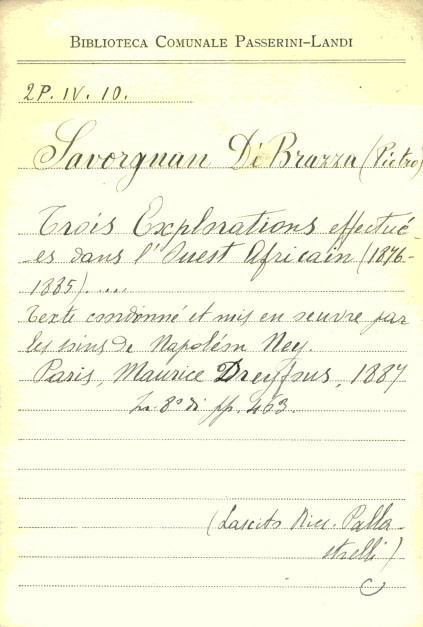 BIBLIOTECA COMUNALE PASSERINI-LANDI
2P. IV. 10.
Savorgnan Di Brazza (Pietro)
Trois Explorations effectué-
-es dans l'Ouest Africain (1876-
1885).....
Texte coordonné et mis en oeuvre par
les soins de Napoléon Ney.
Paris, Maurice Dreyfous, 1887
In 8° di pp. 463.
(Lascito Palla-
strelli)